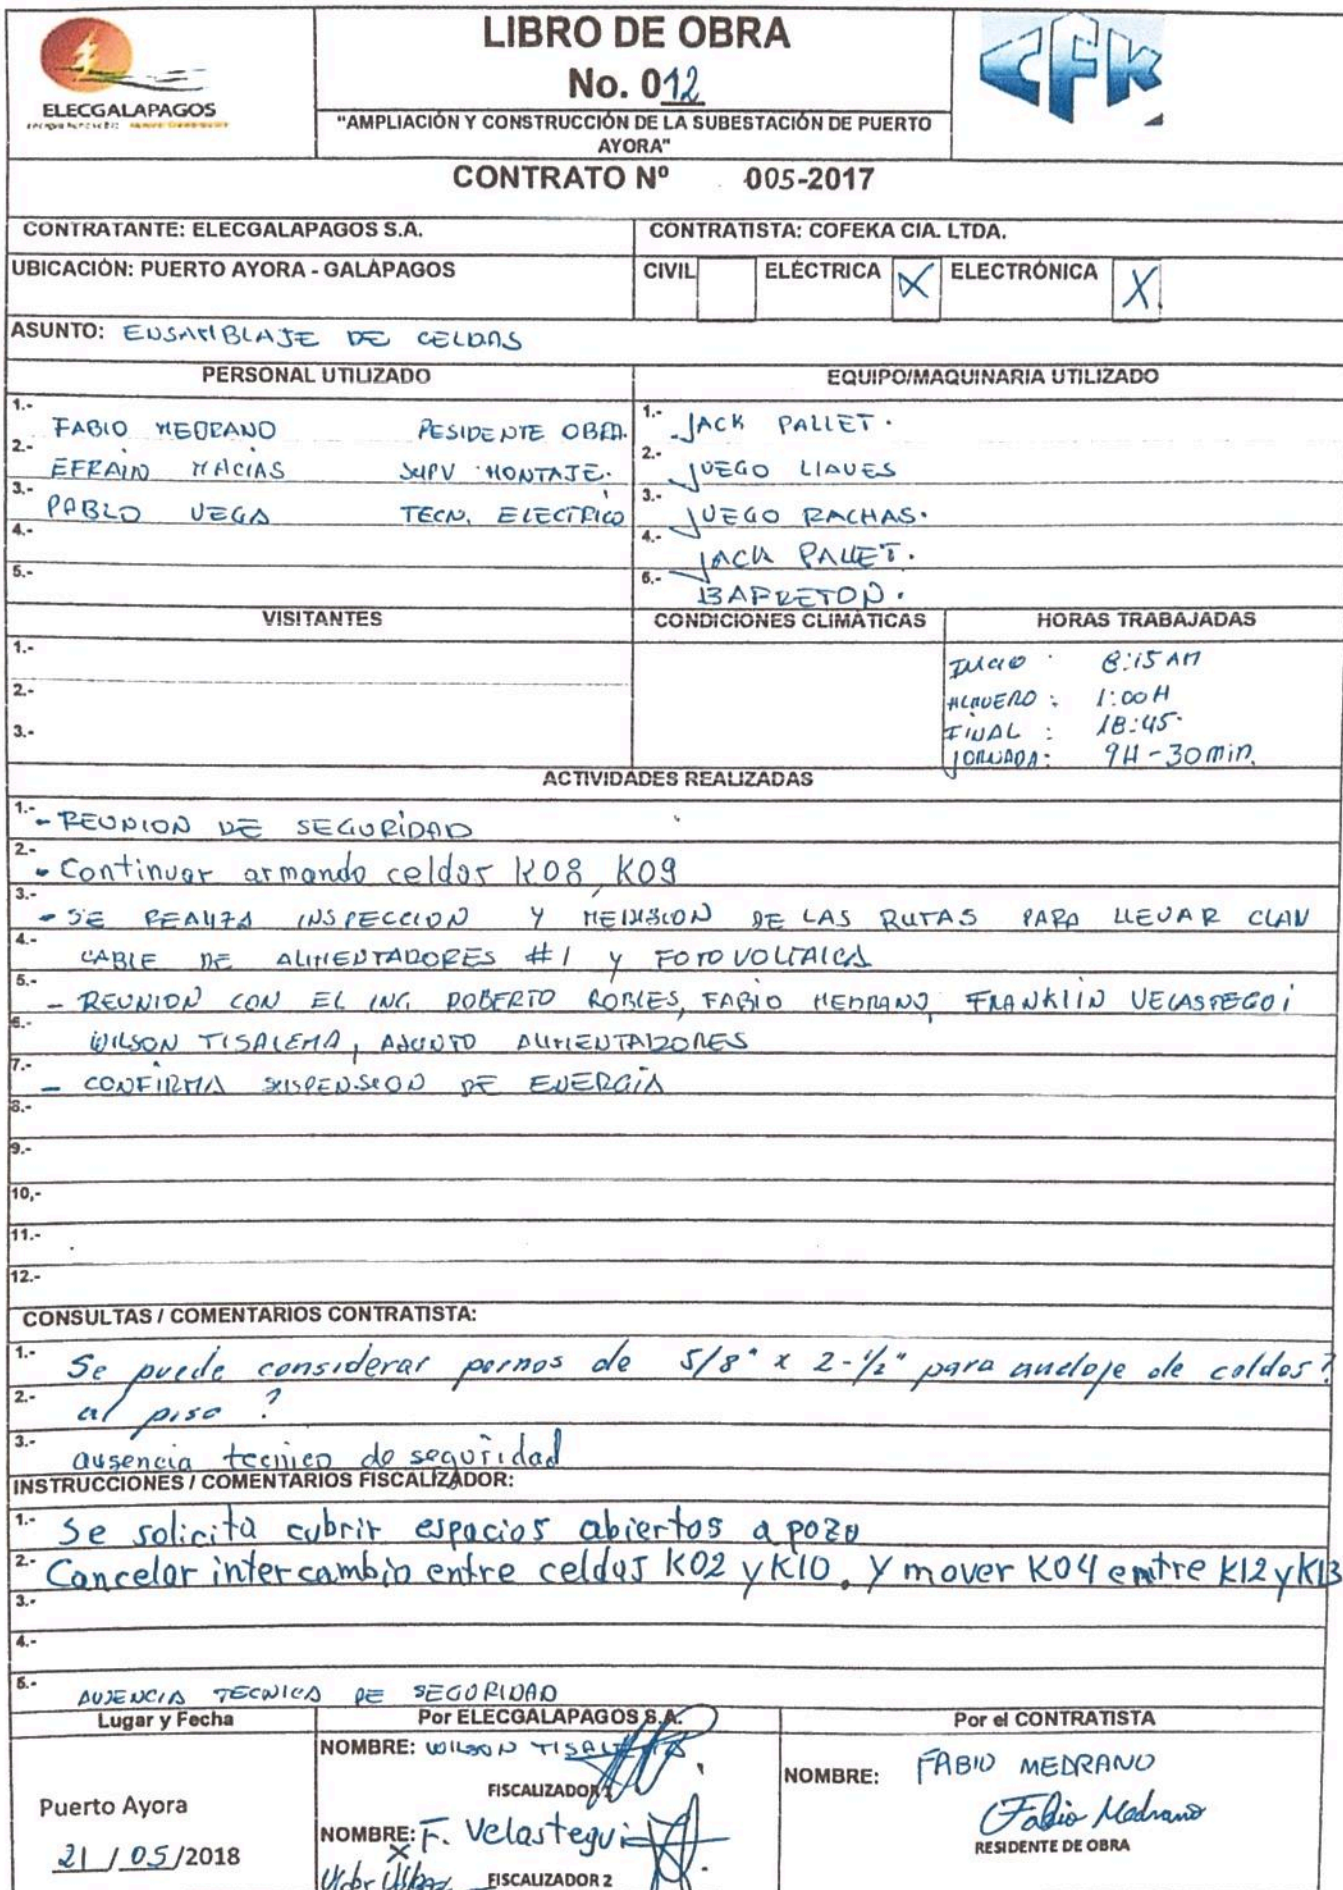 LIBRO DE OBRA
No. 012
ELECGALAPAGOS
"AMPLIACIÓN Y CONSTRUCCIÓN DE LA SUBESTACIÓN DE PUERTO
AYORA"
CFK
CONTRATO Nº 005-2017
CONTRATANTE: ELECGALAPAGOS S.A. CONTRATISTA: COFEKA CIA. LTDA.
UBICACIÓN: PUERTO AYORA - GALÁPAGOS CIVIL ELÉCTRICA X ELECTRÓNICA X
ASUNTO: ENSAMBLAJE DE CELDAS
PERSONAL UTILIZADO EQUIPO/MAQUINARIA UTILIZADO
1.- FABIO MEDRANO RESIDENTE OBRA. 1.- JACK PALLET.
2.- EFRAIN MACIAS SUPV MONTAJE. 2.- JUEGO LLAVES
3.- PABLO VEGA TECN. ELECTRICO 3.- JUEGO RACHAS.
4.- 4.- JACK PALLET.
5.- 5.- BARRETON.
VISITANTES CONDICIONES CLIMÁTICAS HORAS TRABAJADAS
1.- INICIO : 8:15 AM
2.- ALMUERZO : 1:00 H
3.- FINAL : 18:45
JORNADA: 9H - 30 min.
ACTIVIDADES REALIZADAS
1.- - REUNION DE SEGURIDAD
2.- - Continuar armando celdas K08, K09
3.- - SE REALIZA INSPECCION Y MEDICION DE LAS RUTAS PARA LLEVAR
4.- CABLE DE ALIMENTADORES #1 Y FOTOVOLTAICA
5.- - REUNION CON EL ING. ROBERTO ROBLES, FABIO MEDRANO, FRANKLIN VELASTEGUI
6.- WILSON TISALEMA, ASUNTO ALIMENTADORES
7.- - CONFIRMA SUSPENSION DE ENERGIA
8.-
9.-
10,-
11.-
12.-
CONSULTAS / COMENTARIOS CONTRATISTA:
1.- Se puede considerar pernos de 5/8" x 2-1/2" para anclaje de celdas?
2.- al piso ?
3.- ausencia tecnico de seguridad
INSTRUCCIONES / COMENTARIOS FISCALIZADOR:
1.- Se solicita cubrir espacios abiertos a pozo
2.- Cancelar intercambio entre celdas K02 y K10. Y mover K04 entre K12 y K13
3.-
4.-
5.- AUSENCIA TECNICA DE SEGURIDAD
Lugar y Fecha Por ELECGALAPAGOS S.A. Por el CONTRATISTA
NOMBRE: WILSON TISALEMA
FISCALIZADOR 1
NOMBRE: FABIO MEDRANO
Fabio Medrano
RESIDENTE DE OBRA
Puerto Ayora
21 / 05 /2018
NOMBRE: F. Velastegui
FISCALIZADOR 2